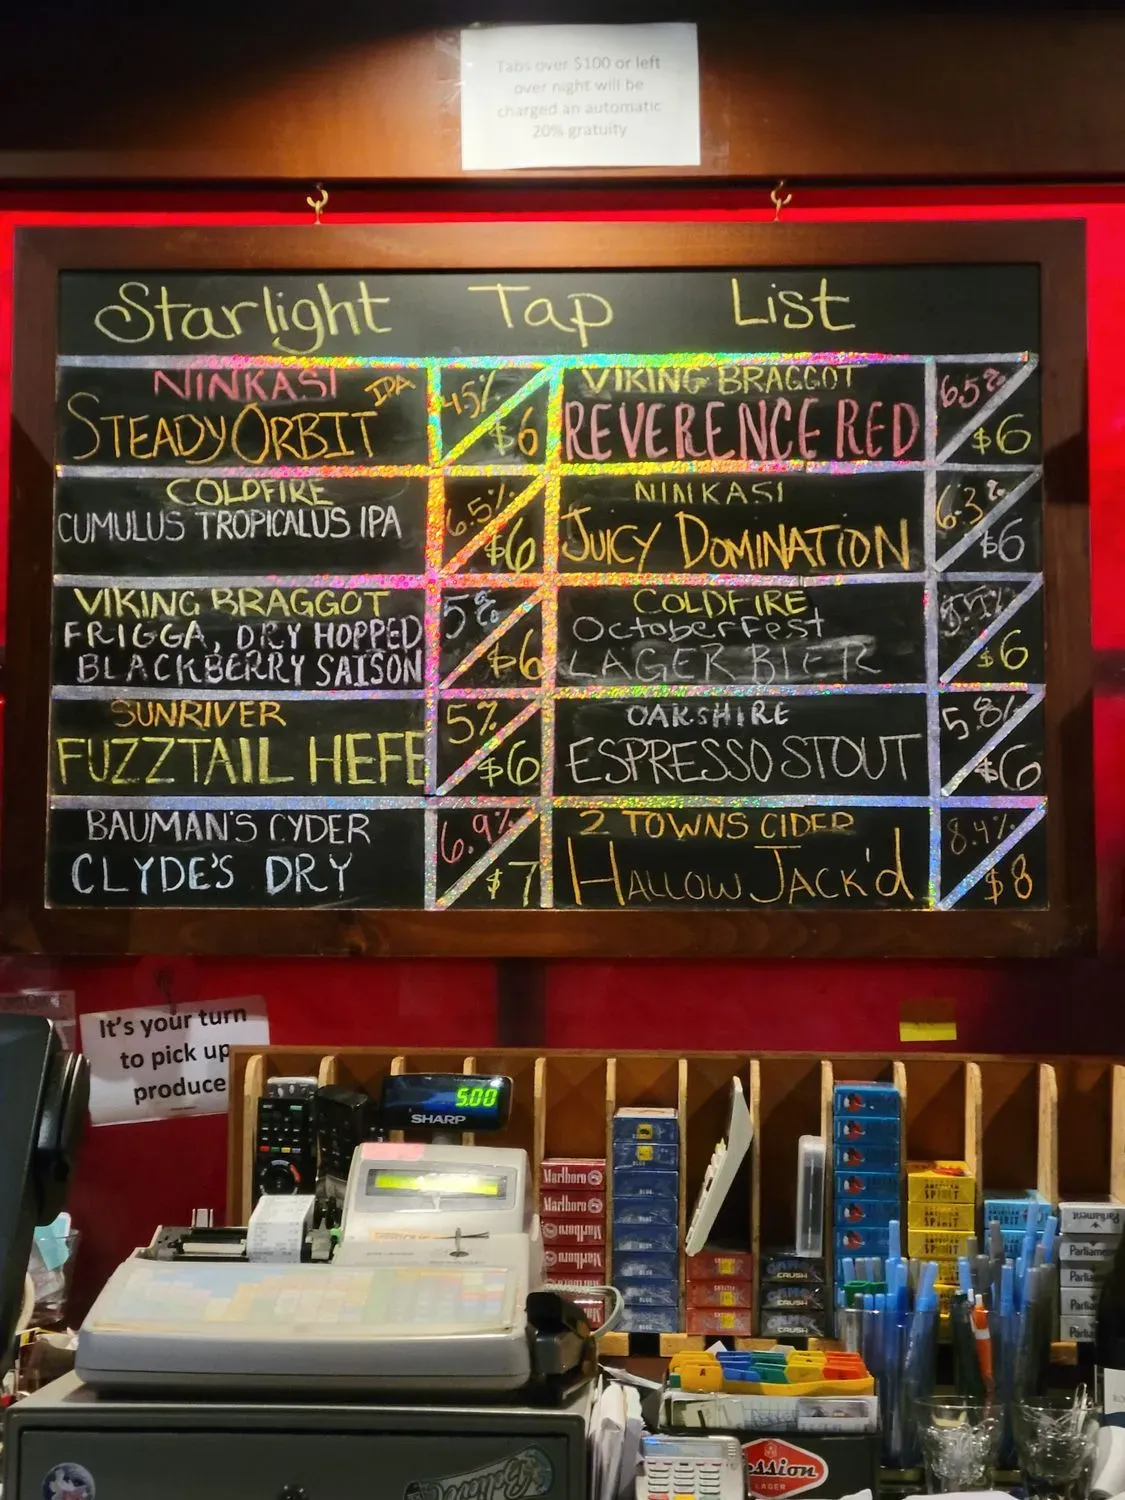 Tabs over $100 or left
over night will be
charged an automatic
20% gratuity
Starlight Tap List
NINKASI
STEADY ORBIT IPA
4.5%
$6
COLDFIRE
CUMULUS TROPICALUS IPA
6.5%
$6
VIKING BRAGGOT
FRIGGA, DRY HOPPED
BLACKBERRY SAISON
5%
$6
SUNRIVER
FUZZTAIL HEFE
5%
$6
BAUMAN'S CYDER
CLYDE'S DRY
6.9%
$7
VIKING BRAGGOT
REVERENCE RED
6.5%
$6
NINKASI
JUICY DOMINATION
6.3%
$6
COLDFIRE
OctoberFest
LAGER BIER
$6
OAKSHIRE
ESPRESSO STOUT
5.8%
$6
2 TOWNS CIDER
HALLOW JACK'd
8.4%
$8
It's your turn
to pick up
produce
5.00
SHARP
Marlboro
Marlboro
Marlboro
Marlboro
Marlboro
BLUE
BLUE
CRUSH
CRUSH
CRUSH
AMERICAN
SPIRIT
SPIRIT
SPIRIT
SPIRIT
Parliament
Parliament
Parliament
Parliament
Parliament
ssion
LAGER
Believe